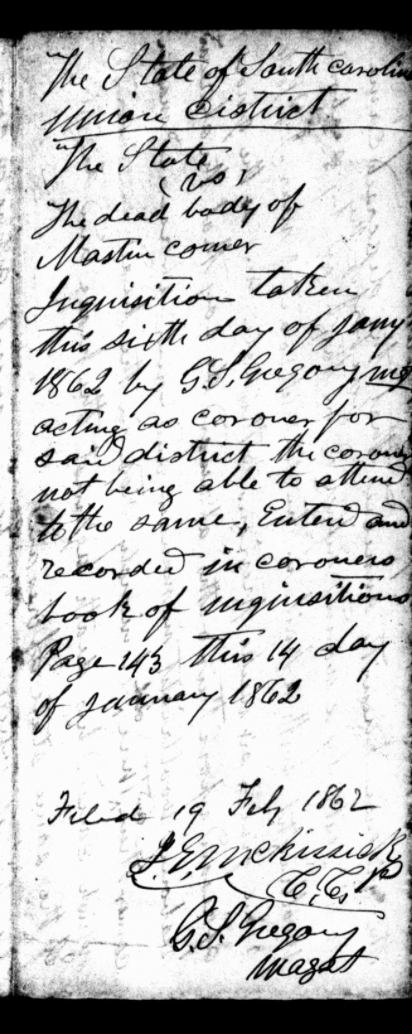 The State of South carolin
Union District
The State
vs,
The dead body of
Mastin comer
Inquisition taken
this sixth day of Jany
1862 by G.S. Gregory mg
acting as coroner for
said district the coroner
not being able to attend
to the same, Enterd and
recorded in coroners
book of inquisitions
Page 143 this 14 day
of January 1862
Filed 19 Feb 1862
J.E. McKissick
C.C.
G.S. Gregory
Magst